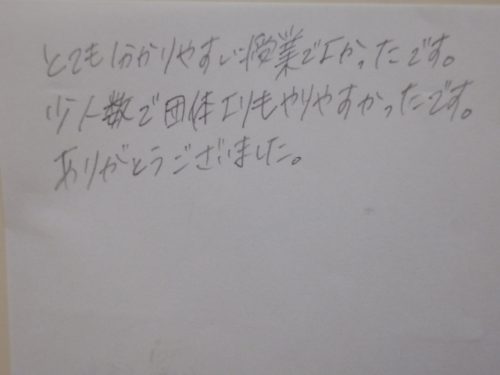 とても分かりやすい授業でよかったです。
少人数で団体よりもやりやすかったです。
ありがとうございました。